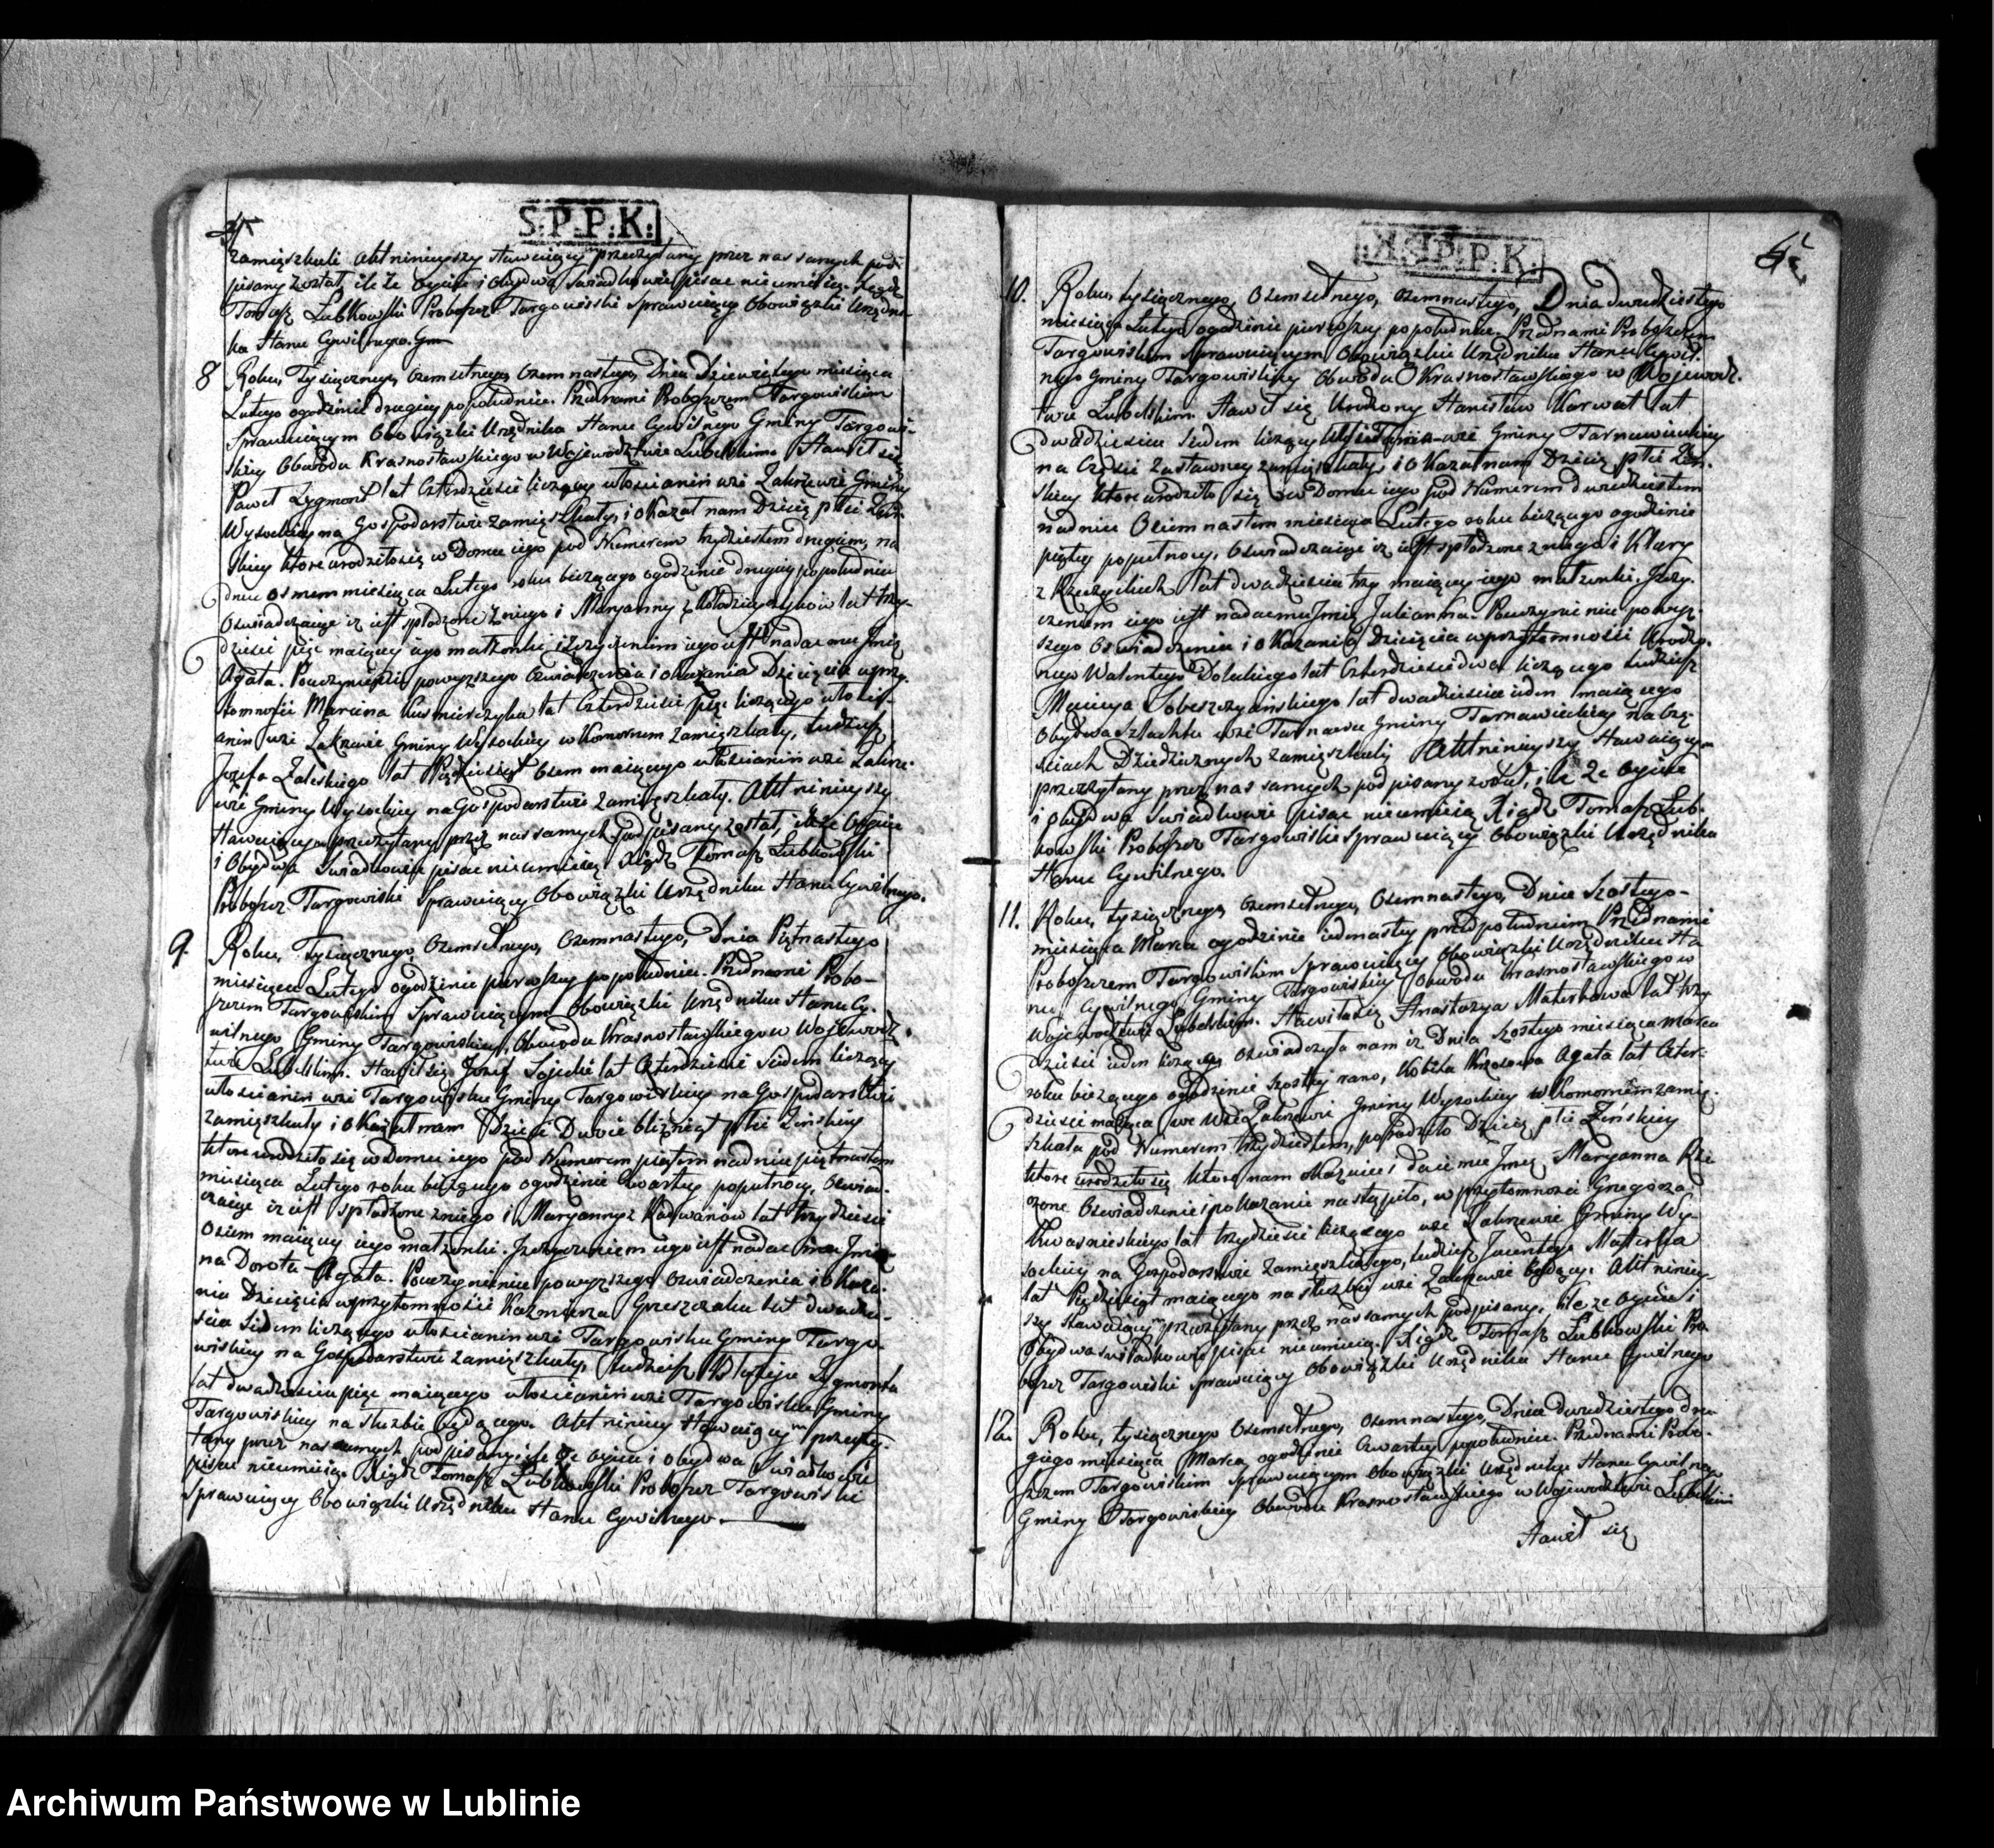 4
S.P.P.K.
zamięszkali Akt ninieyszy stawaiącym przeczytany przez nas samych pod-
pisany został, ile że Oyciec i Obydwa Swiadkowie pisac nieumieią. Xiądz
Tomasz Lubkowski Proboszcz Targowiski Sprawuiący Obowiązki Urzędni-
ka Stanu Cywilnego.
8 Roku, Tysiącznego, Ozemsetnego, Ozemnastego, Dnia Dziewiątego miesiąca
Lutego ogodzinie drugiey popołudniu. Przed nami Proboszczem Targowiskim
Sprawuiącym Obowiązki Urzędnika Stanu Cywilnego Gminy Targowi-
skiey Obwodu Krasnostawskiego w Wojewodztwie Lubelskim. Stawił się
Paweł Zygmont lat Czterdzieści liczący włościanin wsi Zakrzewie Gminy
Wysockiey na Gospodarstwie zamięszkały, i Okazał nam Dziecię płci Żeń-
skiey ktore urodziło się w Domu iego pod Numerem trzydziestem drugim, na
dniu osmem miesiąca Lutego roku bieżącego ogodzinie drugiey popołudniu
Oswiadczaiąc iz iest spłodzone z niego i Maryanny z Kołodzieyczykow lat trzy-
dzieści pięć maiącey iego małżonki, i że życzeniem iego iest nadac mu Jmię
Agata. Po uczynieniu powyższego Oswiadczenia i okazania Dziecięcia w przy-
tomności Marcina Kusmierczyka lat Czterdzieści pięc liczącego włości-
anin wsi Zakrzewie Gminy Wysockiey w Komornem zamięszkały, tudzież
Jozefa Zaleskiego lat Pięćdziesiąt Osem maiącego włościanin wsi Zakrze-
wie Gminy Wysockiey na Gospodarstwie Zamięszkały. Akt ninieyszy
Stawaiącym przeczytany, przez nas samych podpisany został, ile że Oyciec
i Obydwa Swiadkowie pisac nieumieią Xiądz Tomasz Lubkowski
Proboszcz Targowiski Sprawuiący Obowiązki Urzędnika Stanu Cywilnego.
9. Roku, Tysiącznego, Ozemsetnego, Ozemnastego, Dnia Piętnastego
miesiąca Lutego ogodzinie pierwszey popołudniu. Przed nami Probo-
szczem Targowiskim Sprawuiącym Obowiązki Urzędnika Stanu Cy-
wilnego Gminy Targowiskiey, Obwodu Krasnostawskiego w Wojewodz-
twie Lubelskim. Stawił się Jozef Sojecki lat Czterdzieści Siedem liczący
włościanin wsi Targowisku Gminy Targowiskiey na Gospodarstwie
zamięszkały i Okazał nam Dzieci Dwoie bliźniąt płci Żeńskiey
ktore urodziło się w Domu iego pod Numerem piątem na dniu piętnastem
miesiąca Lutego roku bieżącego ogodzinie Czwartey popułnocy, Oswiad-
czaiąc iz iest spłodzone z niego i Maryanny z Karwanow lat trzydzieści
Osiem maiącey iego małżonki. Jz życzeniem iego iest nadac im Jmio-
na Dorota - Agata. Po uczynieniu powyższego Oswiadczenia i Okaza-
nia Dziecięcia w przytomności Kazmierza Grzeszczaka lat dwadzie-
scia Siedem liczącego włościanin wsi Targowisku Gminy Targo-
wiskiey na Gospodarstwie zamięszkały, tudzież Macieja Zygmonta
lat dwadziescia pięc maiącego włościanin wsi Targowisku Gminy
Targowiskiey na służbie będącego. Akt ninieyszy Stawaiącym przeczy-
tany przez nas samych podpisany ile że Oyciec i Obydwa Swiadkowie
pisac nieumieią. Xiądz Tomasz Lubkowski Proboszcz Targowiski
Sprawuiący Obowiązki Urzędnika Stanu Cywilnego.
5
S.P.P.K.
10. Roku, tysiącznego, Ozemsetnego, Ozemnastego, Dnia dwudziestego
miesiąca Lutego ogodzinie pierwszey popołudniu. Przed nami Proboszczem
Targowiskim Sprawuiącym Obowiązki Urzędnika Stanu Cywil-
nego Gminy Targowiskiey Obwodu Krasnostawskiego w Wojewodz-
twie Lubelskim. Stawił się Urodzony Stanisław Karwat lat
dwadziescia Siedem liczący wsi Gminy Tarnawieckiey
na Części Zastawney zamięszkały, i Okazał nam Dziecię płci Żeń-
skiey ktore urodziło się w Domu iego pod Numerem dwudziestem
na dniu Osiemnastem miesiąca Lutego roku bieżącego ogodzinie
piątey popułnocy. Oswiadczaiąc iz iest spłodzone z niego i Klary
z Rzeczyckich lat dwadziescia trzy maiącey iego małżonki. Jz ży-
czeniem iego iest nadac mu Jmię Julianna. Po uczynieniu powyż-
szego Oswiadczenia i Okazania Dziecięcia w przytomności Urodzo-
nego Walentego Dolickiego lat Czterdzieści dwa liczącego tudzież
Macieja Sobeszczańskiego lat dwadziescia ieden maiącego
Obydwa Szlachta wsi Tarnawie Gminy Tarnawieckiey na Czę-
sciach Dziedzicznych zamięszkali Akt ninieyszy Stawaiącym
przeczytany przez nas samych podpisany został, ile że Oyciec
i Obydwa Swiadkowie pisac nieumieią Xiądz Tomasz Lub-
kowski Proboszcz Targowiski Sprawuiący Obowiązki Urzędnika
Stanu Cywilnego.
11. Roku, tysiącznego, Ozemsetnego, Ozemnastego, Dnia Szostego-
miesiąca Marca ogodzinie iedenastey przedpołudniem, Przed nami
Proboszczem Targowiskim Sprawuiący Obowiązki Urzędnika Sta-
nu Cywilnego Gminy Targowiskiey Obwodu Krasnostawskiego w
Wojewodztwie Lubelskim. Stawiła się Anastazya Materkowa lat trzy-
dzieści ieden licząca, Oswiadczyła nam iz Dnia Szostego miesiąca Marca
roku bieżącego ogodzinie Szostey rano, Kobita Agata lat Czter-
dzieści maiąca we Wsi Zakrzewie Gminy Wysockiey w Komornem zamię-
szkała pod Numerem trzydziestem, porodziło Dziecię płci Żeńskiey
ktore urodziło się ktore nam okazuiąc i daie mu Jmię Maryanna Rze-
czone Oswiadczenie i pokazanie nastąpiło, w przytomności Grzegorza
Kwasnieskiego lat trzydzieści liczącego wsi Zakrzewie Gminy Wy-
sockiey na Gospodarstwie Zamięszkałego, tudzież Jacentego Materka
lat Pięćdziesiąt maiącego na służbie wsi Zakrzewie będący. Akt niniey-
szy Stawaiącym przeczytany przez nas samych podpisany, ile że Oyciec i
Obydwa Swiadkowie pisac nieumieią. Xiądz Tomasz Lubkowski Pro-
boszcz Targowiski Sprawuiący Obowiązki Urzędnika Stanu Cywilnego
12. Roku, tysiącznego Ozemsetnego, Ozemnastego, Dnia dwudziestego dru-
giego miesiąca Marca ogodzinie Czwartey popołudniu. Przed nami Probo-
szczem Targowiskim Sprawuiącym Obowiązki Urzędnika Stanu Cywilnego
Gminy Targowiskiey Obwodu Krasnostawskiego w Wojewodztwie Lubelskim
Stawił się
Archiwum Państwowe w Lublinie